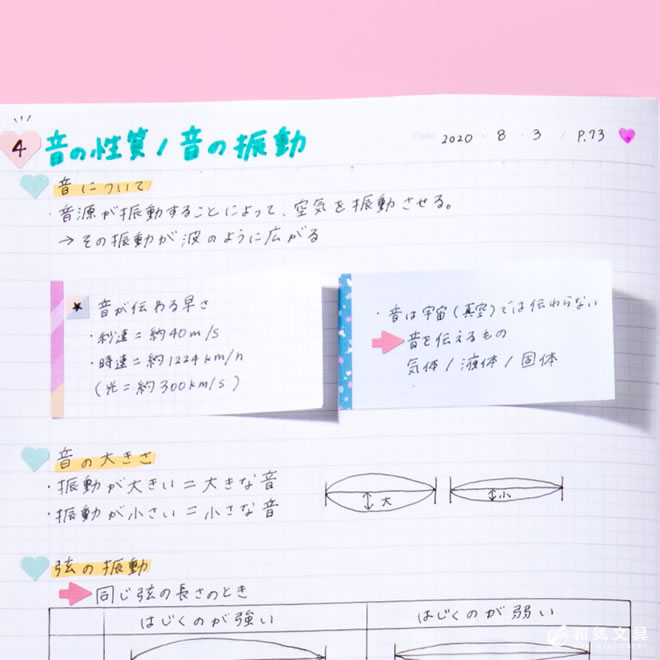 4 音の性質 / 音の振動
Date 2020 . 8 . 3 / P.73
音について
・音源が振動することによって、空気を振動させる。
→その振動が波のように広がる
音が伝わる早さ
・秒速=約40m/s
・時速=約1224km/h
(光=約300km/s)
・音は宇宙(真空)では伝わらない
音を伝えるもの
気体/液体/固体
音の大きさ
・振動が大きい=大きな音
・振動が小さい=小さな音
大
小
弦の振動
同じ弦の長さのとき
はじくのが強い
はじくのが弱い
和気文具
STATIONERY